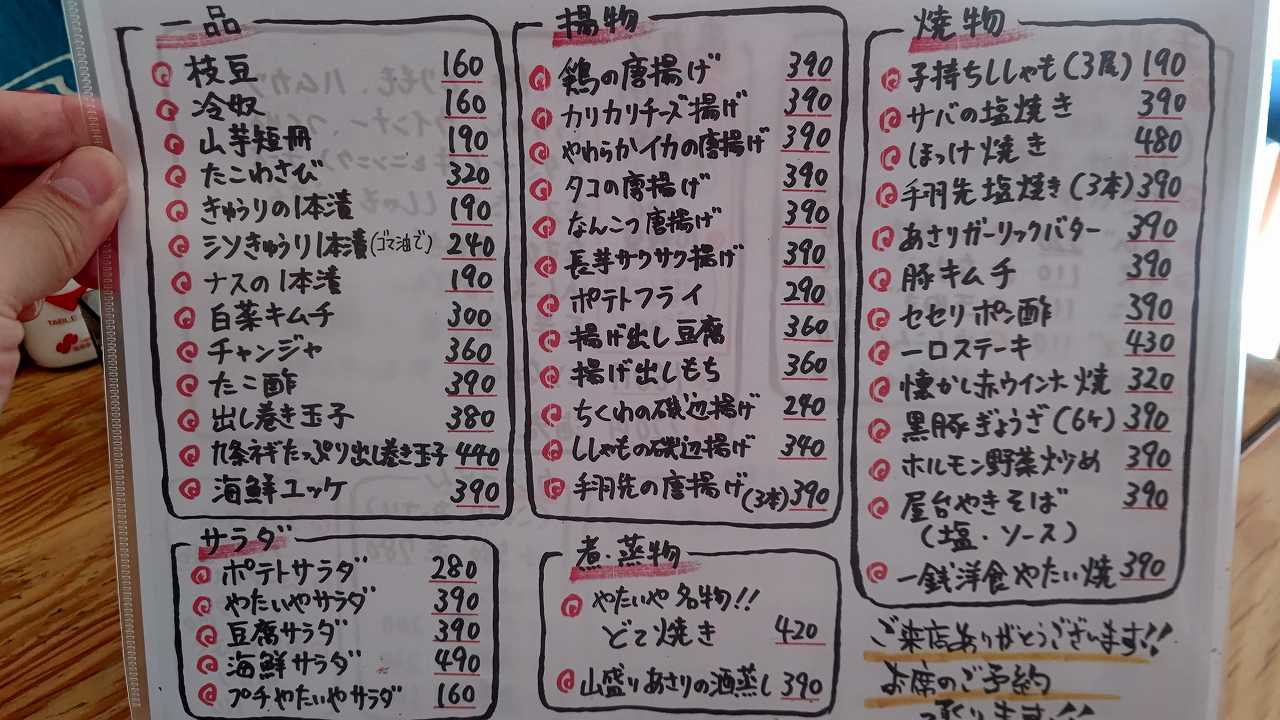 一品
枝豆 160
冷奴 160
山芋短冊 190
たこわさび 320
きゅうりの1本漬 190
シソきゅうり1本漬(ゴマ油で) 240
ナスの1本漬 190
白菜キムチ 300
チャンジャ 360
たこ酢 390
出し巻き玉子 380
九条ネギたっぷり出し巻き玉子 440
海鮮ユッケ 390
サラダ
ポテトサラダ 280
やたいやサラダ 390
豆腐サラダ 390
海鮮サラダ 490
プチやたいやサラダ 160
揚物
鶏の唐揚げ 390
カリカリチーズ揚げ 390
やわらかイカの唐揚げ 390
タコの唐揚げ 390
なんこつ唐揚げ 390
長芋サクサク揚げ 390
ポテトフライ 290
揚げ出し豆腐 360
揚げ出しもち 360
ちくわの磯辺揚げ 240
ししゃもの磯辺揚げ 340
手羽先の唐揚げ(3本) 390
煮・蒸物
やたいや名物!!
どて焼き 420
山盛りあさりの酒蒸し 390
焼物
子持ちししゃも(3尾) 190
サバの塩焼き 390
ほっけ焼き 480
手羽先塩焼き(3本) 390
あさりガーリックバター 390
豚キムチ 390
セセリポン酢 390
一口ステーキ 430
懐かし赤ウインナー焼 320
黒豚ぎょうざ(6ケ) 390
ホルモン野菜炒め 390
屋台やきそば 390
(塩・ソース)
一銭洋食やたい焼 390
ご来店ありがとうございます!!
お席のご予約